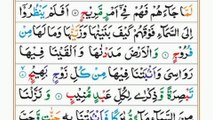 لَمَّا جَآءَهُمْ فَهُمْ فِیْۤ اَمْرٍ مَّرِیْجٍ اَفَلَمْ یَنْظُرُوْۤا
اِلَی السَّمَآءِ فَوْقَهُمْ كَیْفَ بَنَیْنٰهَا وَزَیَّنّٰهَا وَمَا لَهَا مِنْ
فُرُوْجٍ وَالْاَرْضَ مَدَدْنٰهَا وَاَلْقَیْنَا فِیْهَا
رَوَاسِیَ وَاَنْۢبَتْنَا فِیْهَا مِنْ كُلِّ زَوْجٍۭ بَهِیْجٍ
تَبْصِرَةً وَّذِكْرٰی لِكُلِّ عَبْدٍ مُّنِیْبٍ وَنَزَّلْنَا